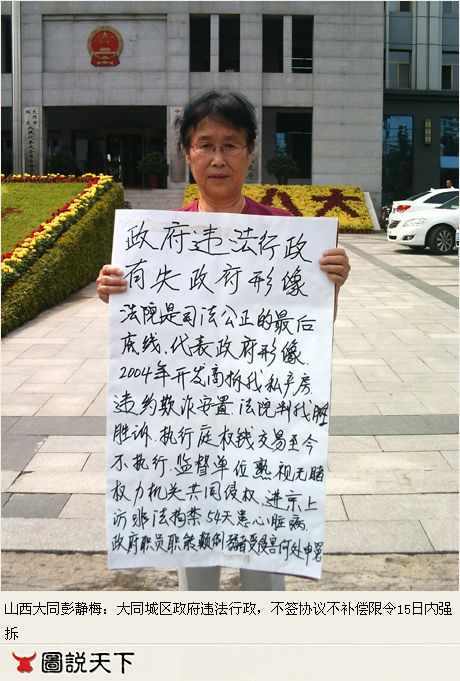 政府违法行政
有失政府形像
法院是司法公正的最后
底线.代表政府形像.
2004年开发商拆我私产房
违约欺诈安置.法院判我胜
胜诉.执行庭权钱交易至今
不执行.监督单位熟视无睹
权力机关共同侵权.进京上
访非法拘禁54天患心脏病
政府职员职能颠倒 弱者受侵害何处申冤
八大
山西大同彭静梅：大同城区政府违法行政，不签协议不补偿限令15日内强
拆
圖説天下